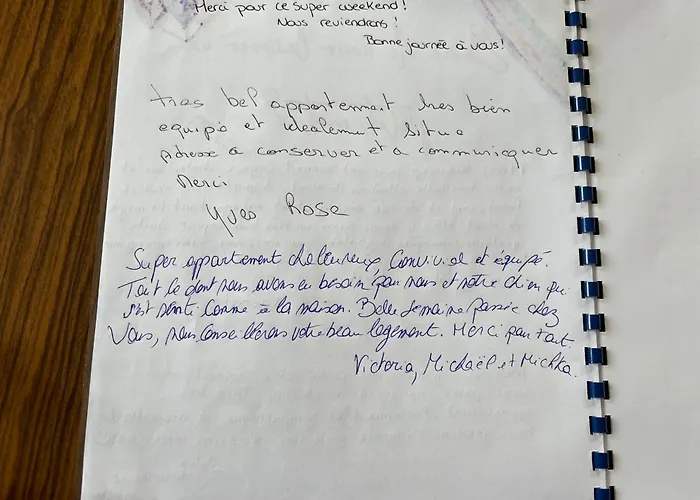 Merci pour ce super weekend!
Nous reviendrons!
Bonne journée à vous!
tres bel appartement tres bien
equipé et idealement situé
Adresse a conserver et a communicquer
Merci
Yves Rose
Super appartement chaleureux, Convivial et équipé.
Tout ce dont nous avons eu besoin pour nous et notre chien qui
s'est senti comme à la maison. Belle semaine passée chez
Vous, nous conseillerons votre beau logement. Merci pour tout.
Victoria, Michaël et Michka.